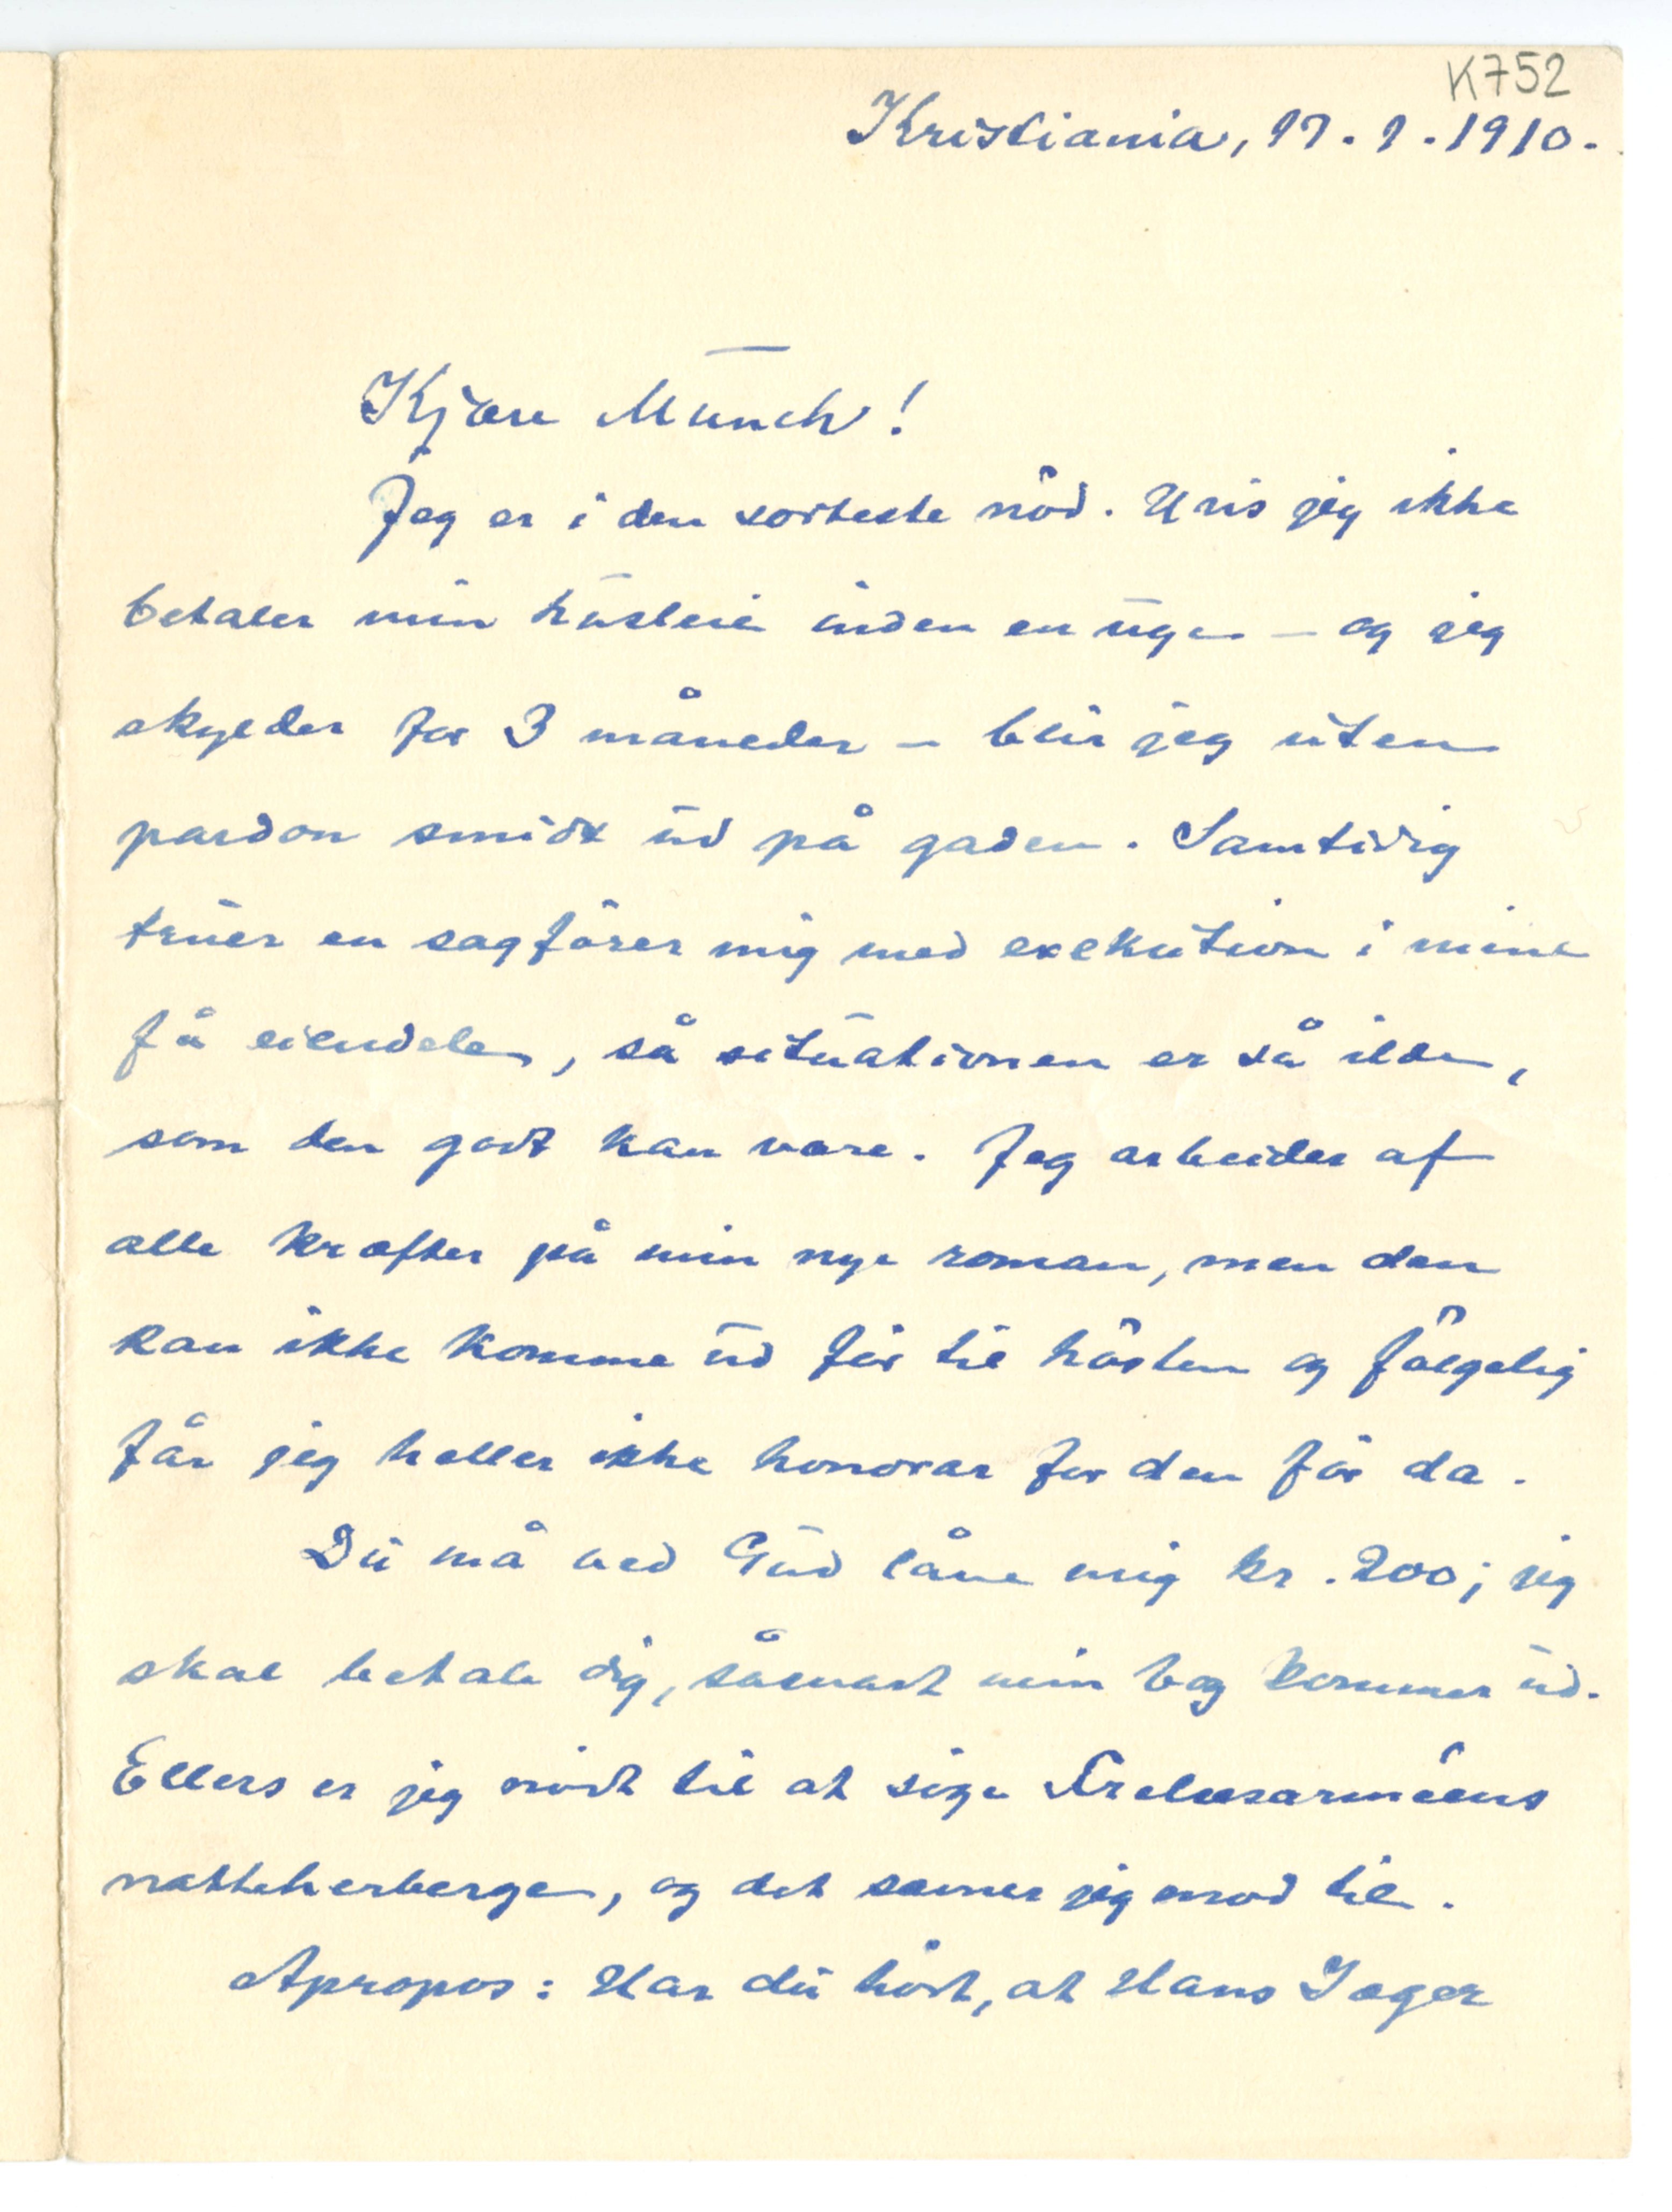 K752
Kristiania, 17. 1. 1910.
Kjære Munch!
Jeg er i den sorteste nöd. Hvis jeg ikke
betaler min husleie inden en uge – og jeg
skylder for 3 måneder – blir jeg uten
pardon smidt ud på gaden. Samtidig
truer en sagförer mig med exekution i mine
få eiendele, så situationen er så ilde,
som den godt kan være. Jeg arbeider af
alle kræfter på min nye roman, men den
kan ikke komme ud för til hösten og fölgelig
får jeg heller ikke honorar for den för da.
Du må ved Gud låne mig kr. 200; jeg
skal betale dig, såsnart min bog kommer ud.
Ellers er jeg nödt til at söge Frelsesarméens
natteherberge, og det savner jeg mod til.
Apropos: Har du hört, at Hans Jæger